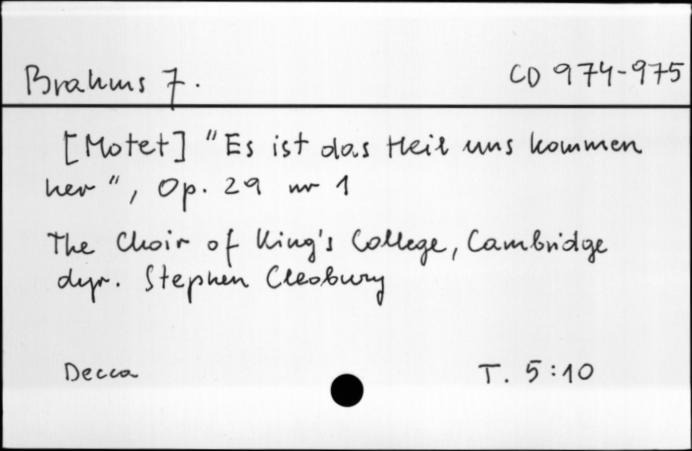 Brahms J. CD 974-975
[Motet] "Es ist das Heil uns kommen
her", Op. 29 nr 1
The Choir of King's College, Cambridge
dyr. Stephen Cleobury
Decca T. 5:10